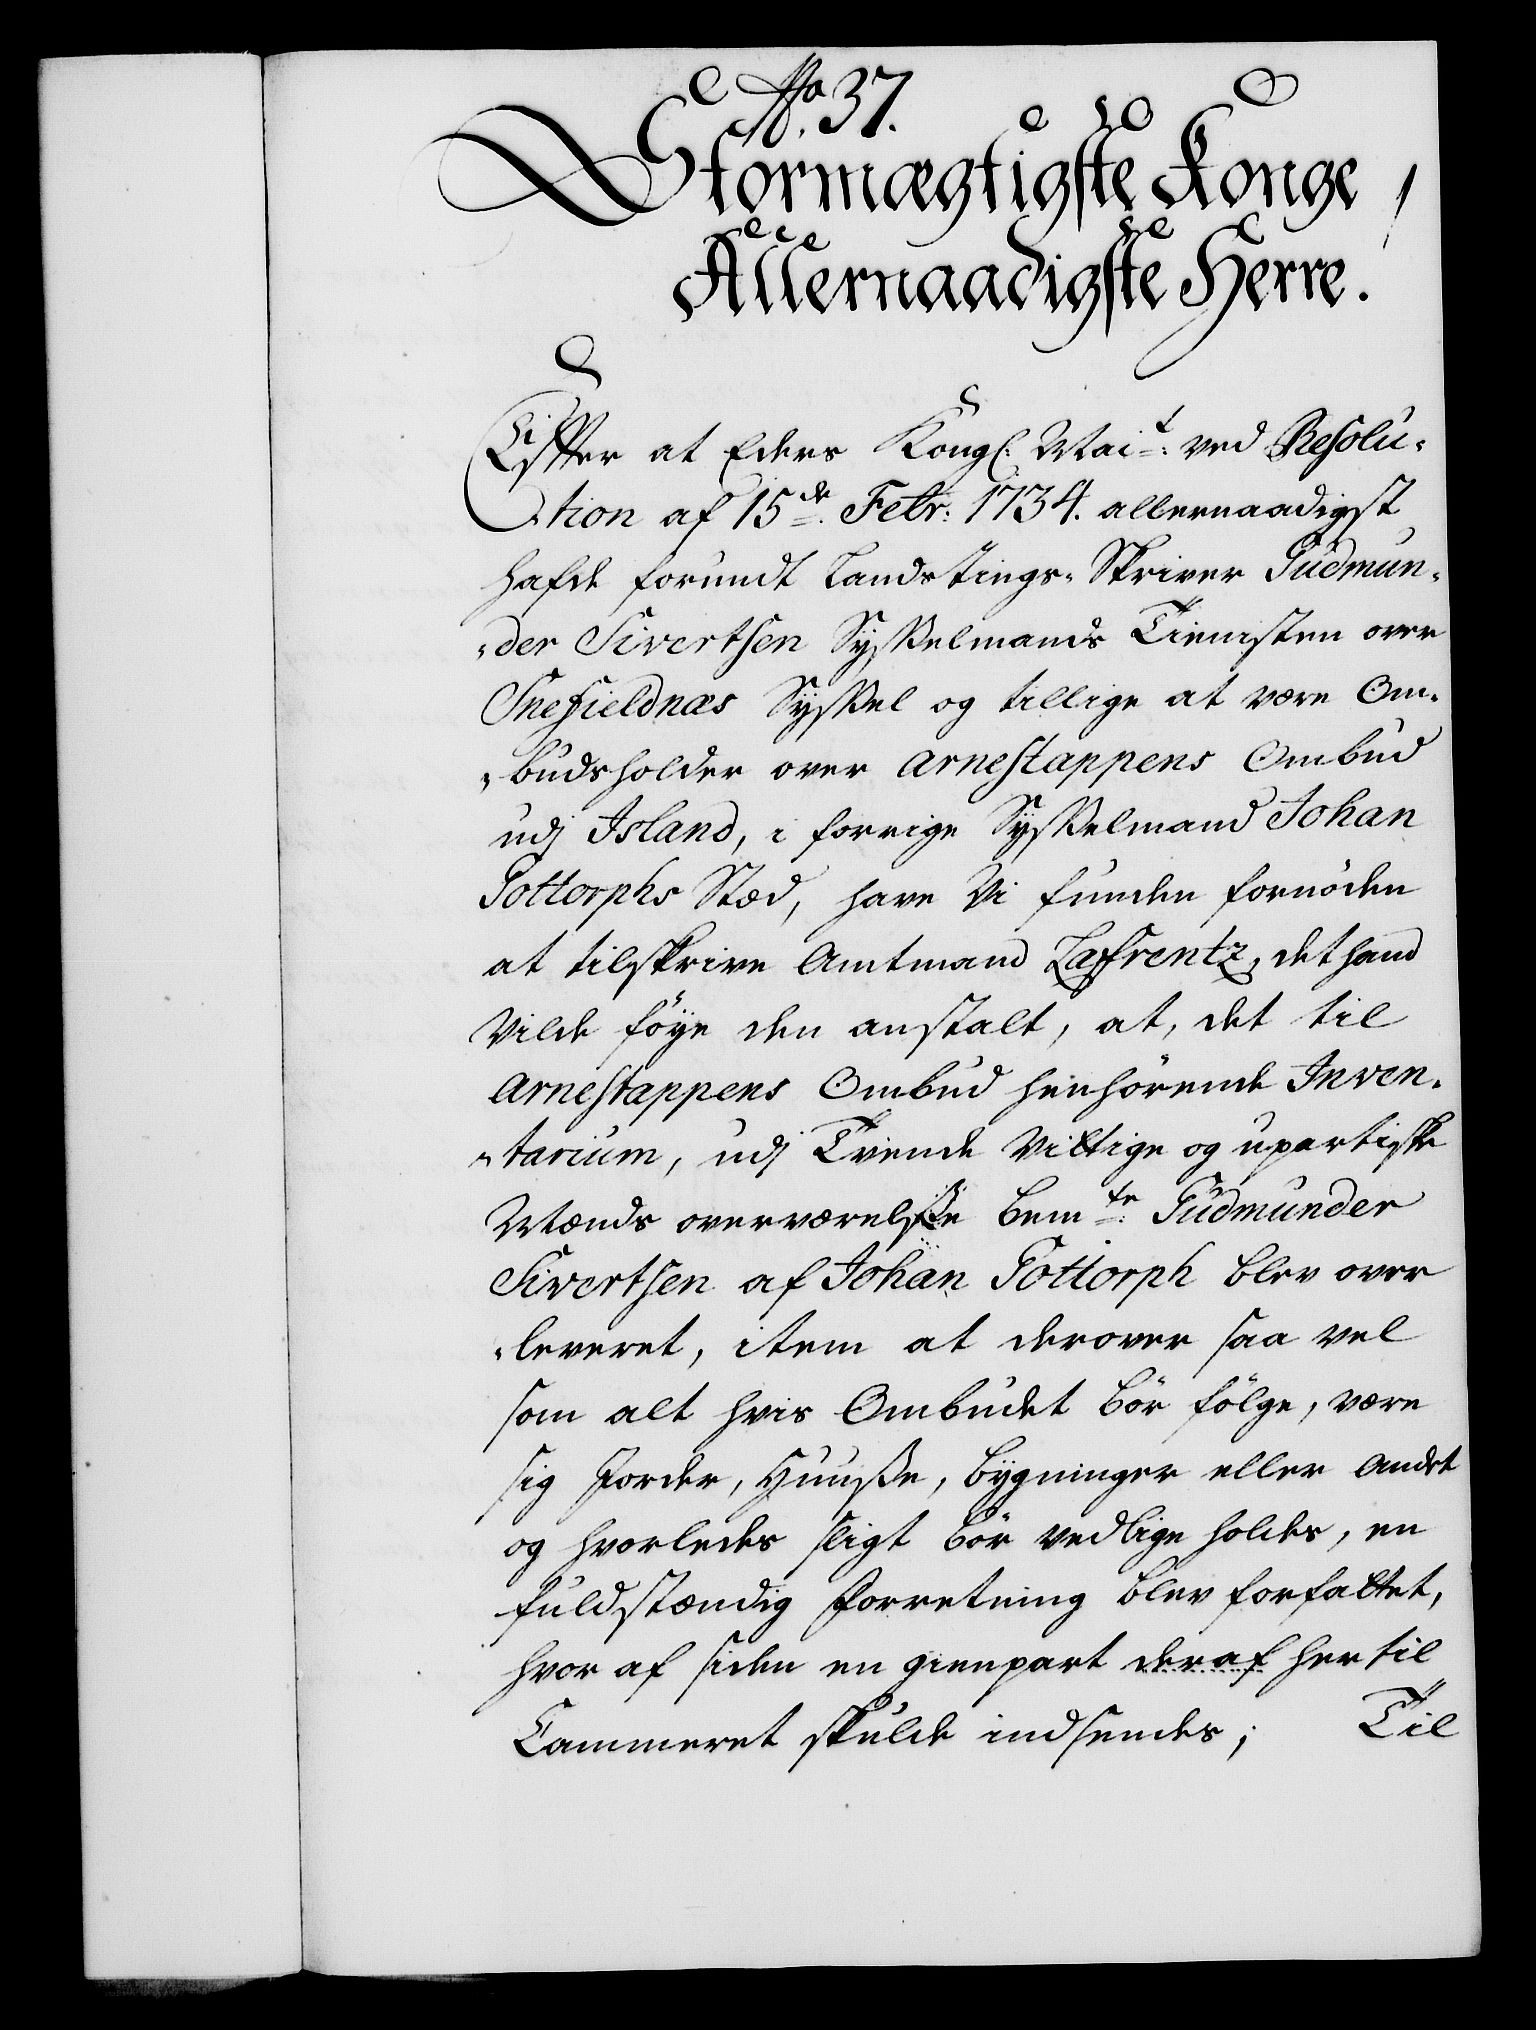 No. 37.
Stormægtigste Konge,
Allernaadigste Herre.
Efter at Eders Kongl: Mai.t: ved Resolu-
tion af 15de. Febr: 1734. allernaadigst
hafde forundt Landstings-Skriver Gudmun-
-der Sivertsen Sysselmands Tienisten over
Snefieldnæs Syssel og tillige at være Om-
-budsholder over Arnestappens Ombud
udj Island, i forrige Sysselmand Johan
Gottorphs Stæd, have Vi funden fornöden
at tilskrive Amtmand Laffrentz, det hand
Vilde föye den anstalt, at, det til
Arnestappens Ombud henhörende Inven-
-tarium, udj Tvende Vittige og upartiske
Mænds overværelsse bem.te: Gudmunder
Sivertsen af Johan Gottorph blev over
-leveret, item at derover saa vel
som alt hvis Ombudet bör fölge, være
sig Jorder, Huuße, bygninger eller Andet
og hvorledes sligt bör vedlige holdes, en
fuldstændig Forretning blev forfattet,
hvor af siden en gienpart deraf her til
Cammeret skulde indsendes; Til